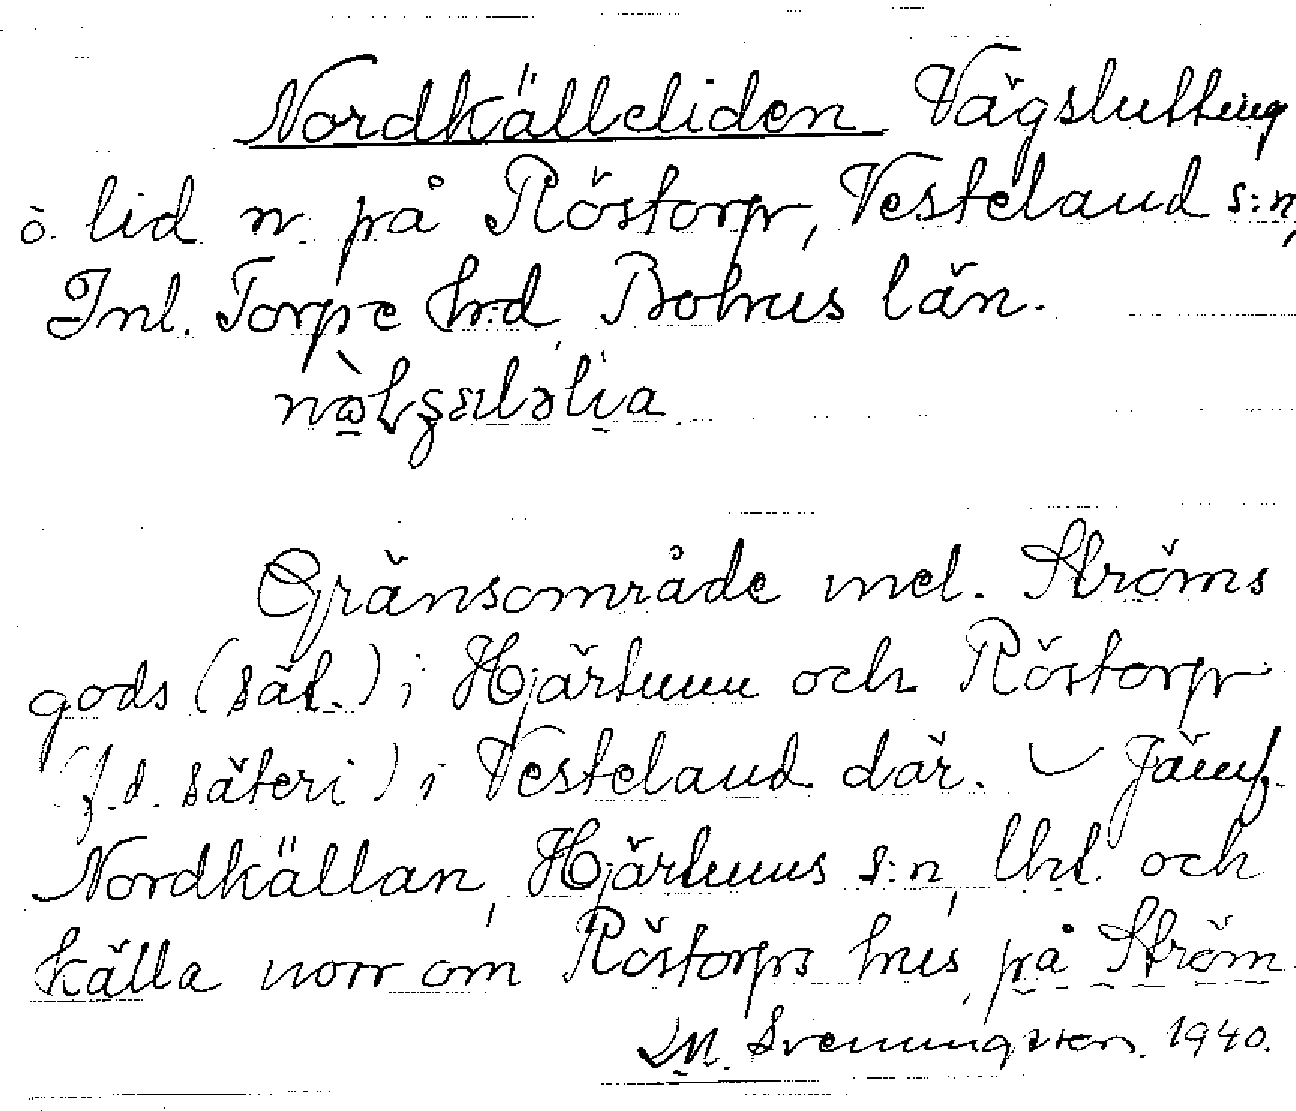 Nordkälleliden Vägsluttning
o. lid n. på Röstorp, Vesteland s:n,
Inl. Torpe hrd, Bohus län.
Gränsområde mel. Ströms
gods (sät.) i Hjärtum och Röstorp
(f.d. säteri) i Vesteland där. Jämf.
Nordkällan, Hjärtums s:n, lhl. och
källa norr om Röstorps hus, på Ström
M. Svenningsson. 1940.